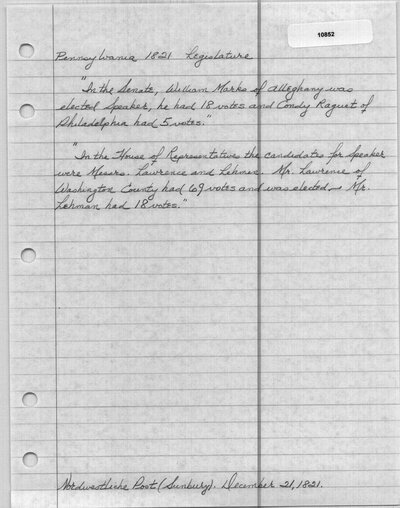 10852
Pennsylvania 1821 Legislature
"In the Senate, William Marks of Alleghany was
elected Speaker, he had 18 votes and Condy Raguet of
Philadelphia had 5 votes."
"In the House of Representatives the candidates for Speaker
were Messrs. Lawrence and Lehman. Mr. Lawrence of
Washington County had 69 votes and was elected. Mr.
Lehman had 18 votes."
Nordwestliche Post (Sunbury). December 21, 1821.